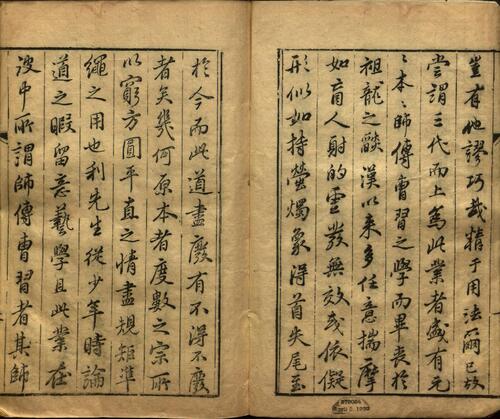 豈有他謬巧哉精于用法爾已故
嘗謂三代而上為此業者盛有元
〻本〻師傳曹習之學而畢喪於
祖龍之燄漢以來多任意揣摩
如盲人射的虛發無效或依儗
形似如持螢燭象得首失尾至
於今而此道盡廢有不得不廢
者矣幾何原本者度數之宗所
以窮方圓平直之情盡規矩準
繩之用也利先生從少年時論
道之暇留意藝學且此業在
彼中所謂師傳曹習者其師